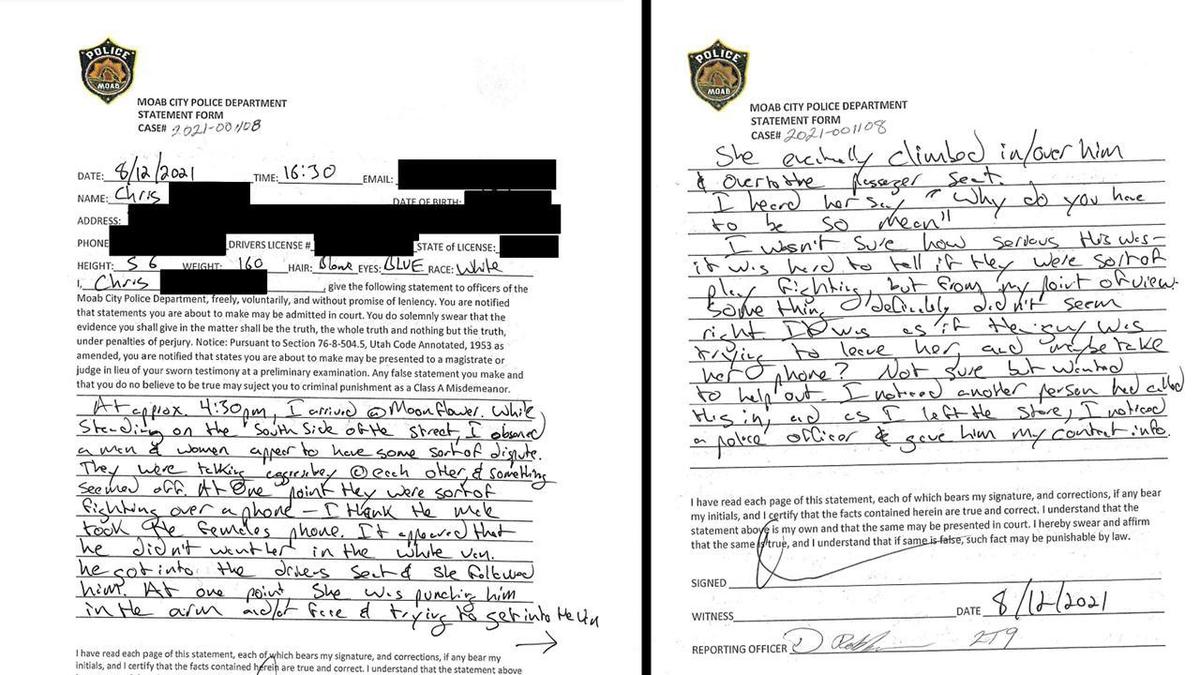 POLICE
MOAB
MOAB CITY POLICE DEPARTMENT
STATEMENT FORM
CASE# 2021-001108
DATE: 8/12/2021 TIME: 16:30 EMAIL:
NAME: Chris DATE OF BIRTH:
ADDRESS:
PHONE DRIVERS LICENSE# STATE of LICENSE:
HEIGHT: 5 6 WEIGHT: 160 HAIR: Blonde EYES: BLUE RACE: White
I, Chris , give the following statement to officers of the
Moab City Police Department, freely, voluntarily, and without promise of leniency. You are notified
that statements you are about to make may be admitted in court. You do solemnly swear that the
evidence you shall give in the matter shall be the truth, the whole truth and nothing but the truth,
under penalties of perjury. Notice: Pursuant to Section 76-8-504.5, Utah Code Annotated, 1953 as
amended, you are notified that states you are about to make may be presented to a magistrate or
judge in lieu of your sworn testimony at a preliminary examination. Any false statement you make and
that you do no believe to be true may suject you to criminal punishment as a Class A Misdemeanor.
At approx. 4:30pm, I arrived @ Moonflower. While
standing on the South Side of the street, I observed
a man & women appear to have some sort of dispute.
They were talking aggressively @ each other, & something
seemed off. At one point they were sort of
fighting over a phone – I think the male
took the females phone. It appeared that
he didn't want her in the white van.
he got into the drivers seat & she followed
him. At one point She was punching him
in the arm and/or face & trying to get into the van
→
I have read each page of this statement, each of which bears my signature, and corrections, if any bear my
initials, and I certify that the facts contained herein are true and correct. I understand that the statement above
POLICE
MOAB
MOAB CITY POLICE DEPARTMENT
STATEMENT FORM
CASE# 2021-001108
She eventually climbed in/over him
& over to the passenger seat.
I heard her say "Why do you have
to be so mean"
I wasn't sure how serious this was –
it was hard to tell if they were sort of
play fighting, but from my point of view
something definitely didn't seem
right. It was as if the guy was
trying to leave her, and maybe take
her phone? Not sure but wanted
to help out. I noticed another person had called
this in, and as I left the store, I noticed
a police officer & gave him my contact info.
I have read each page of this statement, each of which bears my signature, and corrections, if any bear
my initials, and I certify that the facts contained herein are true and correct. I understand that the
statement above is my own and that the same may be presented in court. I hereby swear and affirm
that the same is true, and I understand that if same is false, such fact may be punishable by law.
SIGNED
WITNESS DATE 8/12/2021
REPORTING OFFICER 2T9